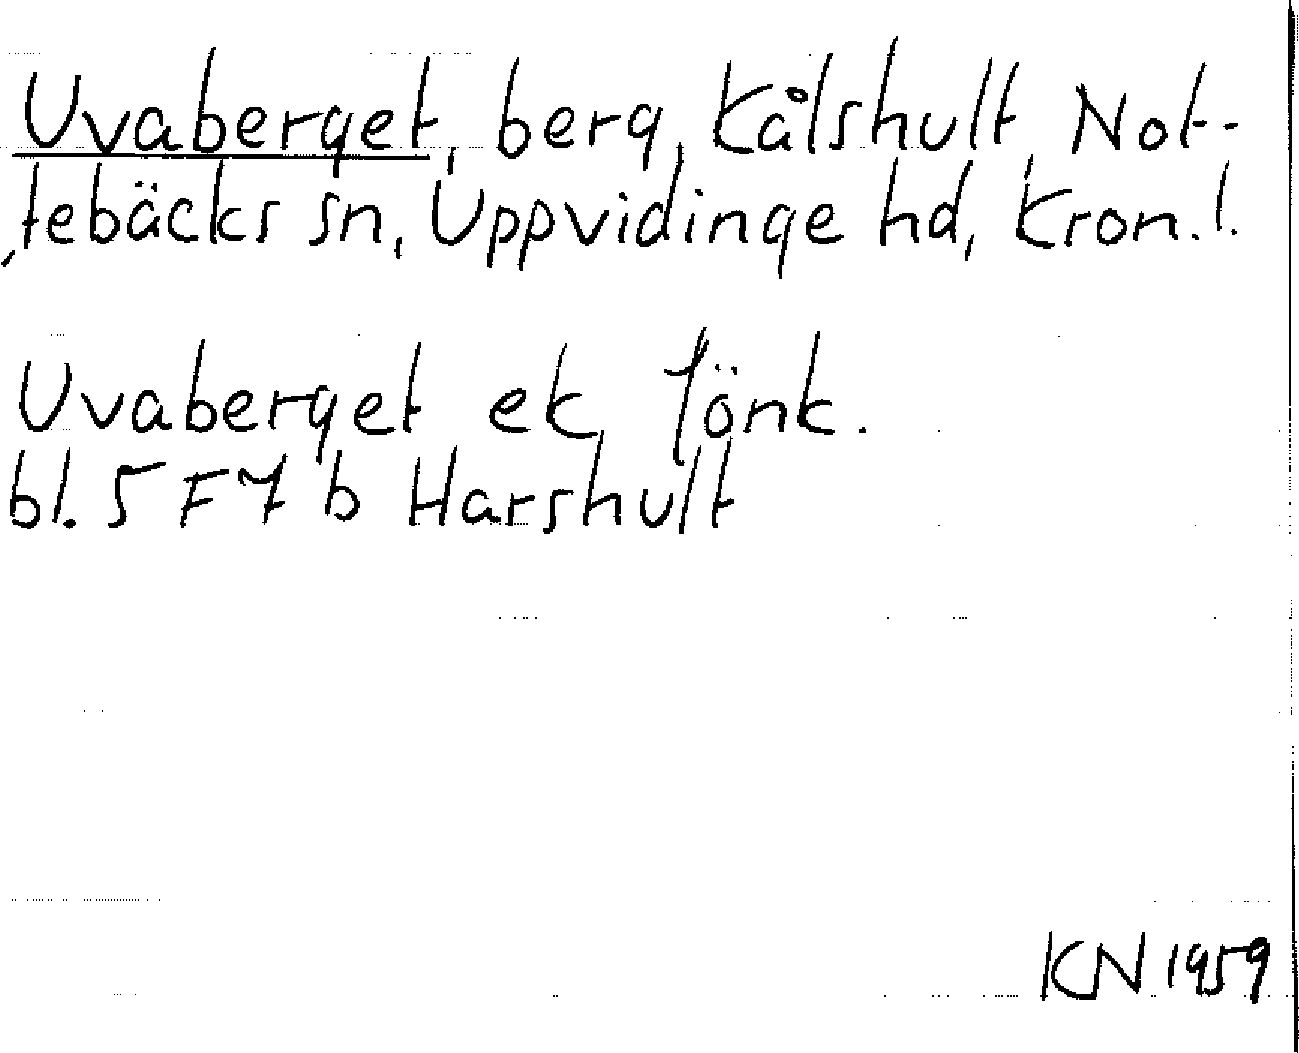 Uvaberget, berg, Kålshult, Not-
tebäcks sn, Uppvidinge hd, Kron. l.
Uvaberget ek Jönk.
bl. 5 F 7 b Harshult
KN 1959